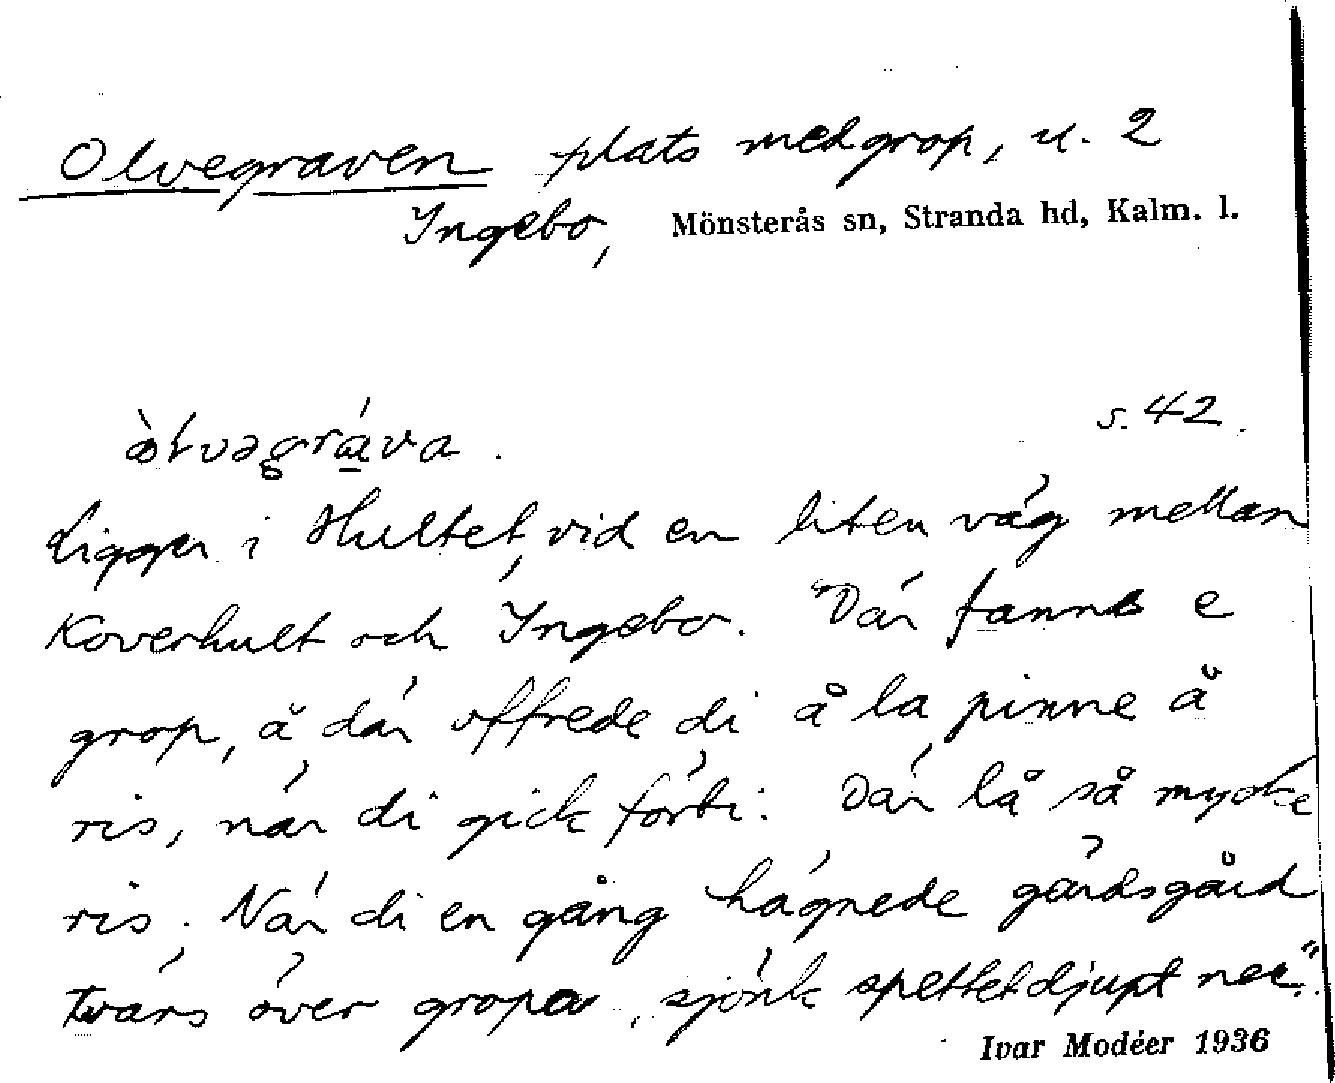 Olvegraven plats med grop, u. 2
Ingebo, Mönsterås sn, Stranda hd, Kalm. l.
s. 42.
Ligger i Hultet, vid en liten väg mellan
Koverhult och Ingebo. "Där fanns e
grop, å där offrede di å la pinne å
ris, när di gick förbi. Där lå så mycke
ris. När di en gång hägnede gärdsgård
tvärs över gropa, sjönk spettet djupt ner."
Ivar Modéer 1936